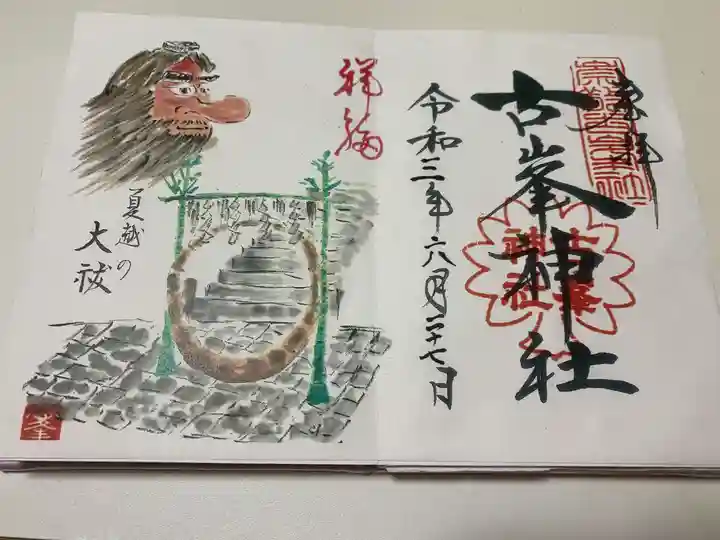 奉拝
古峯神社
令和三年六月二十七日
祥福
夏越の
大祓
峯